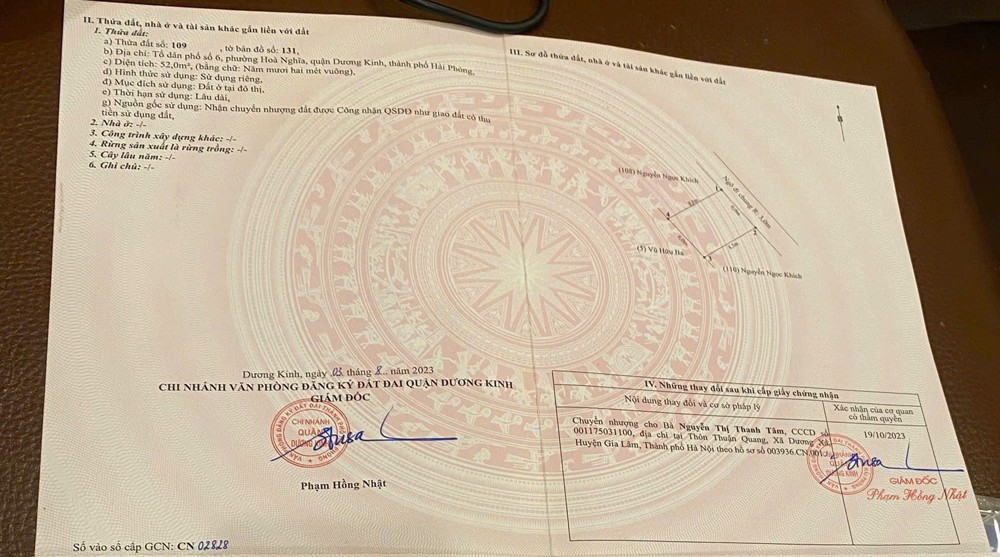 II. Thửa đất, nhà ở và tài sản khác gắn liền với đất
1. Thửa đất:
a) Thửa đất số: 109 , tờ bản đồ số: 131,
b) Địa chỉ: Tổ dân phố số 6, phường Hoà Nghĩa, quận Dương Kinh, thành phố Hải Phòng,
c) Diện tích: 52,0m², (bằng chữ: Năm mươi hai mét vuông),
d) Hình thức sử dụng: Sử dụng riêng,
đ) Mục đích sử dụng: Đất ở tại đô thị,
e) Thời hạn sử dụng: Lâu dài,
g) Nguồn gốc sử dụng: Nhận chuyển nhượng đất được Công nhận QSDĐ như giao đất có thu
tiền sử dụng đất,
2. Nhà ở: -/-
3. Công trình xây dựng khác: -/-
4. Rừng sản xuất là rừng trồng: -/-
5. Cây lâu năm: -/-
6. Ghi chú: -/-
Dương Kinh, ngày 03 tháng 8 năm 2023
CHI NHÁNH VĂN PHÒNG ĐĂNG KÝ ĐẤT ĐAI QUẬN DƯƠNG KINH
GIÁM ĐỐC
CHI NHÁNH
QUẬN
DƯƠNG KINH
Phạm Hồng Nhật
Số vào sổ cấp GCN: CN 02828
III. Sơ đồ thửa đất, nhà ở và tài sản khác gắn liền với đất
(108) Nguyễn Ngọc Khích
Ngõ đi chung R:
1
2
3
4
(5) Vũ Hữu Ba
(110) Nguyễn Ngọc Khích
IV. Những thay đổi sau khi cấp giấy chứng nhận
Nội dung thay đổi và cơ sở pháp lý
Xác nhận của cơ quan
có thẩm quyền
Chuyển nhượng cho Bà Nguyễn Thị Thanh Tâm, CCCD số
001175031100, địa chỉ tại Thôn Thuận Quang, Xã Dương Xá,
Huyện Gia Lâm, Thành phố Hà Nội theo hồ sơ số 003936.CN.001
19/10/2023
GIÁM ĐỐC
Phạm Hồng Nhật